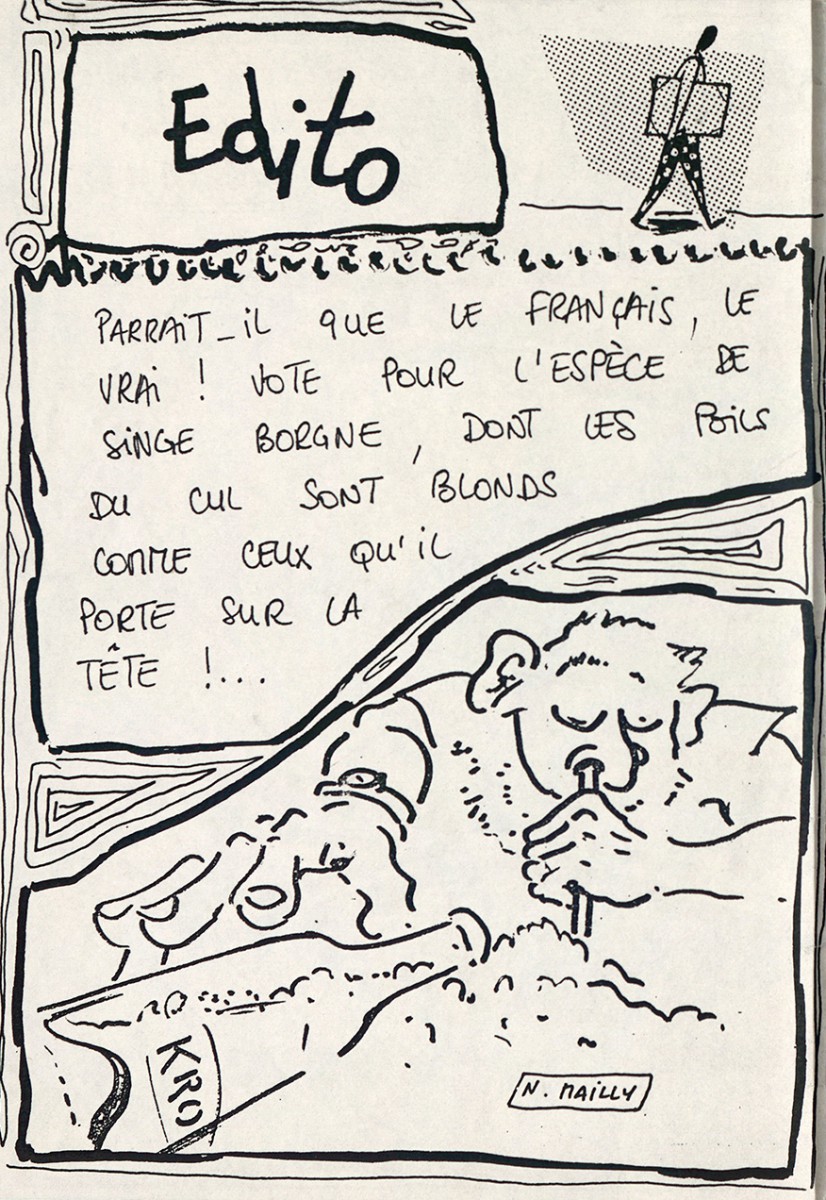 Edito
PARRAIT_iL QUE LE FRANÇAIS, LE
VRAi ! VOTE POUR L'ESPÈCE DE
SiNGE BORGNE, DONT LES POiLS
DU CUL SONT BLONDS
COMME CEUX QU'iL
PORTE SUR LA
TÊTE !...
KRO
N. MAiLLY